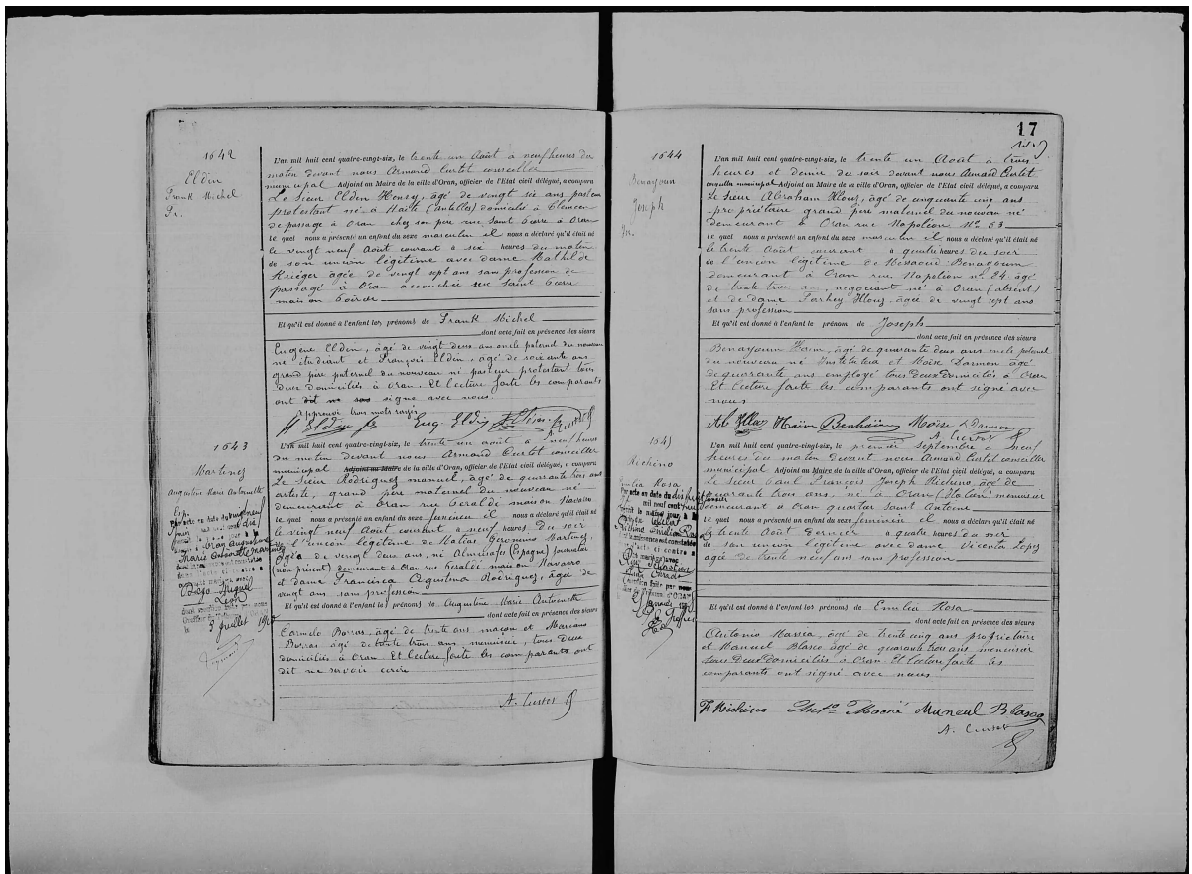 1642
Eldin
Frank Michel
Fr.
L'an mil huit cent quatre-vingt-six, le trente un Août à neuf heures du
matin devant nous Armand Curtet conseiller
municipal Adjoint au Maire de la ville d'Oran, officier de l'Etat civil délégué, a comparu
Le Sieur Eldin Henry, âgé de vingt six ans pasteur
protestant né à Haïti (Antilles) domicilié à Clemcen
de passage à Oran chez son père rue Saint Pierre à Oran
le quel nous a présenté un enfant du sexe masculin il nous a déclaré qu'il était né
le vingt neuf Août courant à six heures du matin
de son union légitime avec dame Mathilde
Krieger âgée de vingt sept ans sans profession de
passage à Oran accouchée rue Saint Pierre
maison
Et qu'il est donné à l'enfant les prénoms de Frank Michel
dont acte fait en présence des sieurs
Eugène Eldin, âgé de vingt deux ans oncle paternel du nouveau
né étudiant et François Eldin, âgé de soixante ans
grand père paternel du nouveau né pasteur protestant tous
deux domiciliés à Oran. Et lecture faite les comparants
ont dit ne signé avec nous.
Approuvé trois mots rayés
H Eldin Eug. Eldin
A. Curtet
1643
Martinez
Augustine Marie Antoinette
Esp.
3 Juillet
L'an mil huit cent quatre-vingt-six, le trente un août à neuf heures
du matin devant nous Armand Curtet conseiller
municipal Adjoint au Maire de la ville d'Oran, officier de l'Etat civil délégué, a comparu
Le Sieur Rodriguez Manuel, âgé de quarante trois ans
artiste, grand père maternel du nouveau né
demeurant à Oran rue Géraldi maison Navarro
le quel nous a présenté un enfant du sexe féminin il nous a déclaré qu'il était né
le vingt neuf Août courant à neuf heures du soir
de l'union légitime de Matias Geronimo Martinez,
âgé de vingt deux ans, né Alminages (Espagne) journalier
(non présent) demeurant à Oran rue Géraldi maison Navarro
et dame Francisca Agustina Rodriguez, âgée de
vingt ans sans profession
Et qu'il est donné à l'enfant les prénoms de Augustine Marie Antoinette
dont acte fait en présence des sieurs
Carmelo Borras, âgé de trente ans maçon et Mariano
Borras âgé de trente trois ans menuisier, tous deux
domiciliés à Oran Et lecture faite les comparants ont
dit ne savoir écrire
A. Curtet
17
1644
Benayoun
Joseph
L'an mil huit cent quatre-vingt-six, le trente un Août à trois
heures et demie du soir devant nous Armand Curtet
conseiller municipal Adjoint au Maire de la ville d'Oran, officier de l'Etat civil délégué, a comparu
Le Sieur Abraham Illouz, âgé de cinquante cinq ans
propriétaire grand père maternel du nouveau né
demeurant à Oran rue Napoléon No 53
le quel nous a présenté un enfant du sexe masculin il nous a déclaré qu'il était né
le trente Août courant à quatre heures du soir
de l'union légitime de Messaoud Benayoun
demeurant à Oran rue Napoléon no 24 âgé
de trente trois ans, négociant né à Oran (absent)
et de dame Illouz âgée de vingt sept ans
sans profession
Et qu'il est donné à l'enfant le prénom de Joseph
dont acte fait en présence des sieurs
Benayoun Haïm, âgé de quarante deux ans oncle paternel
du nouveau né Instituteur et Moïse Darmon âgé
de quarante ans employé tous deux domiciliés à Oran
Et lecture faite les comparants ont signé avec
nous
Ab Illouz Haïm Benhaïm Moïse Darmon
A. Curtet
1645
Richino
Emilia Rosa
L'an mil huit cent quatre-vingt-six, le premier septembre à neuf
heures du matin devant nous Armand Curtet conseiller
municipal Adjoint au Maire de la ville d'Oran, officier de l'Etat civil délégué, a comparu
Le Sieur Paul François Joseph Richino, âgé de
quarante trois ans, né à Oran menuisier
demeurant à Oran quartier Saint Antoine
le quel nous a présenté un enfant du sexe féminin il nous a déclaré qu'il était né
le trente Août dernier à quatre heures du soir
de son union légitime avec dame Victoria Lopez
âgée de trente neuf ans sans profession
Et qu'il est donné à l'enfant les prénoms de Emilia Rosa
dont acte fait en présence des sieurs
Antonio Maria, âgé de trente cinq ans propriétaire
et Manuel Blasco âgé de quarante trois ans menuisier
tous deux domiciliés à Oran. Et lecture faite les
comparants ont signé avec nous
Manuel Blasco
A. Curtet